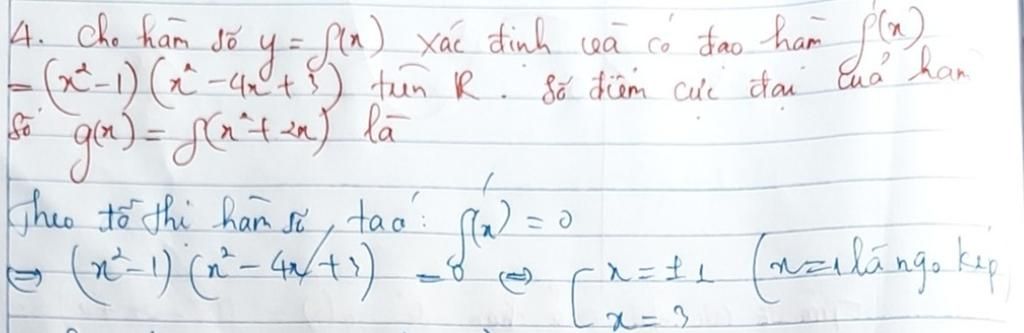 4. Cho hàm số y = f(x) xác định và có đạo hàm f'(x)
= (x² - 1) (x² - 4x + 3) trên R. Số điểm cực đại của hàm
số g(x) = f(x² + 2x) là
Theo đồ thị hàm số, ta có: f'(x) = 0
⇔ (x² - 1) (x² - 4x + 3) = 0 ⇔ [ x = ±1 (x = 1 là ngo kép
x = 3